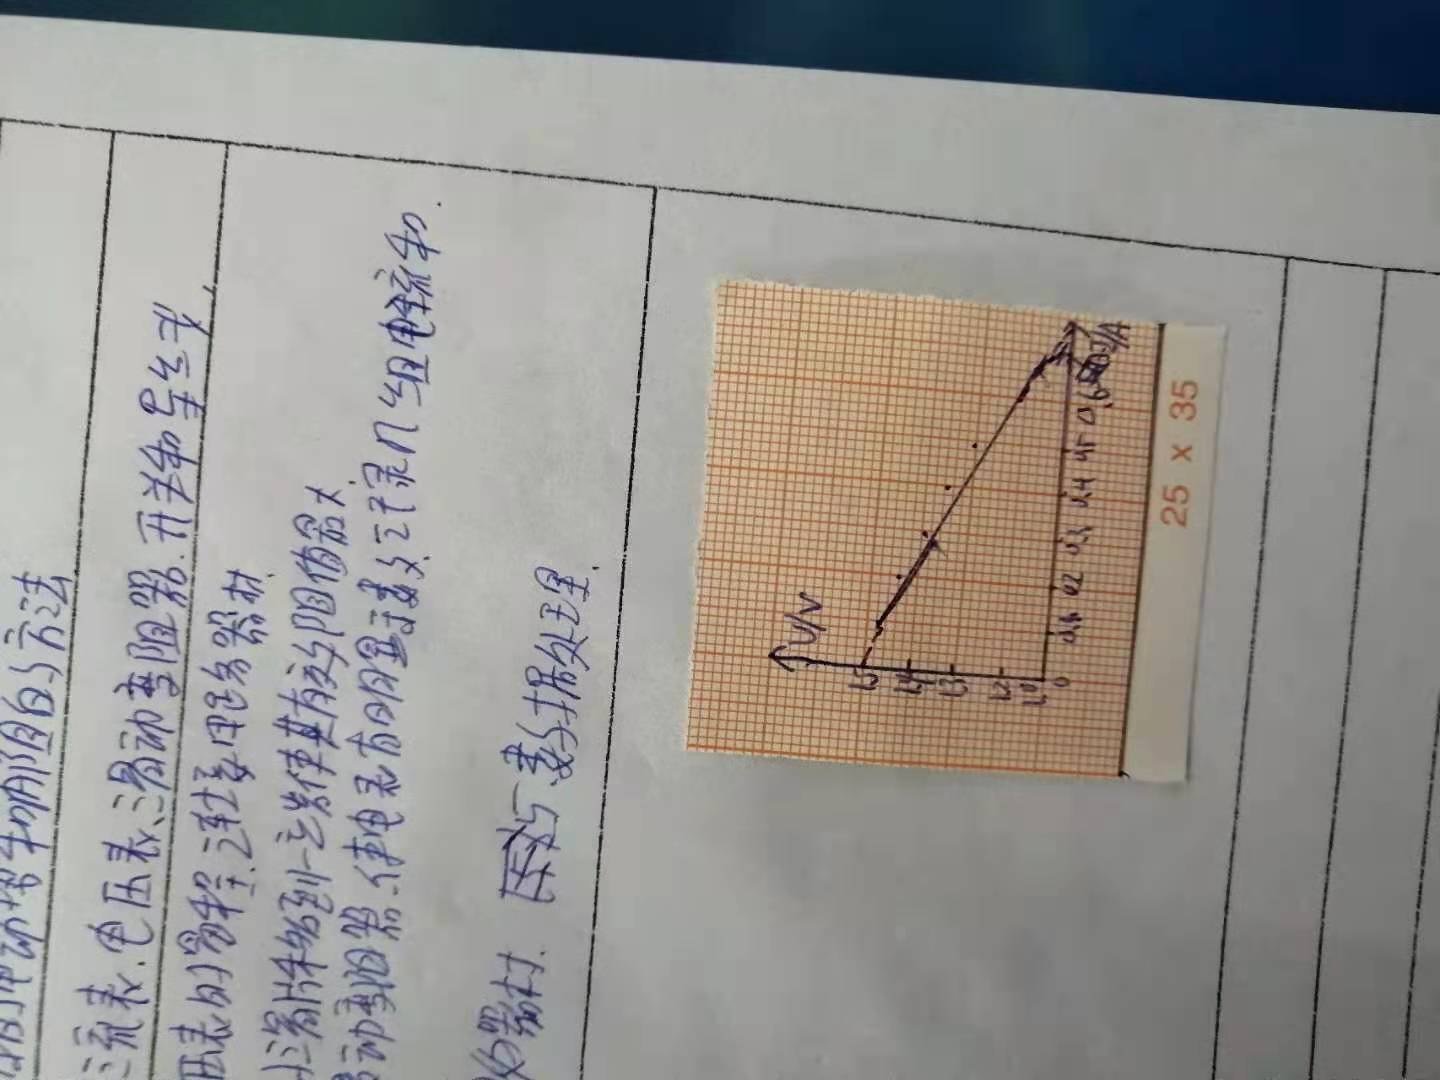 电动势和内阻的方法
流表.电压表.滑动变阻器.开关和导线
压表的量程.连接电路器材.
滑片移到一端使其有效阻值最大.
动变阻器.使电表有明显示数记录几组电流和
器材. 数据处理.
U/V
1.5
1.4
1.3
1.2
1.0
0
0.2
0.3
0.4
0.6
I/A
25 x 35